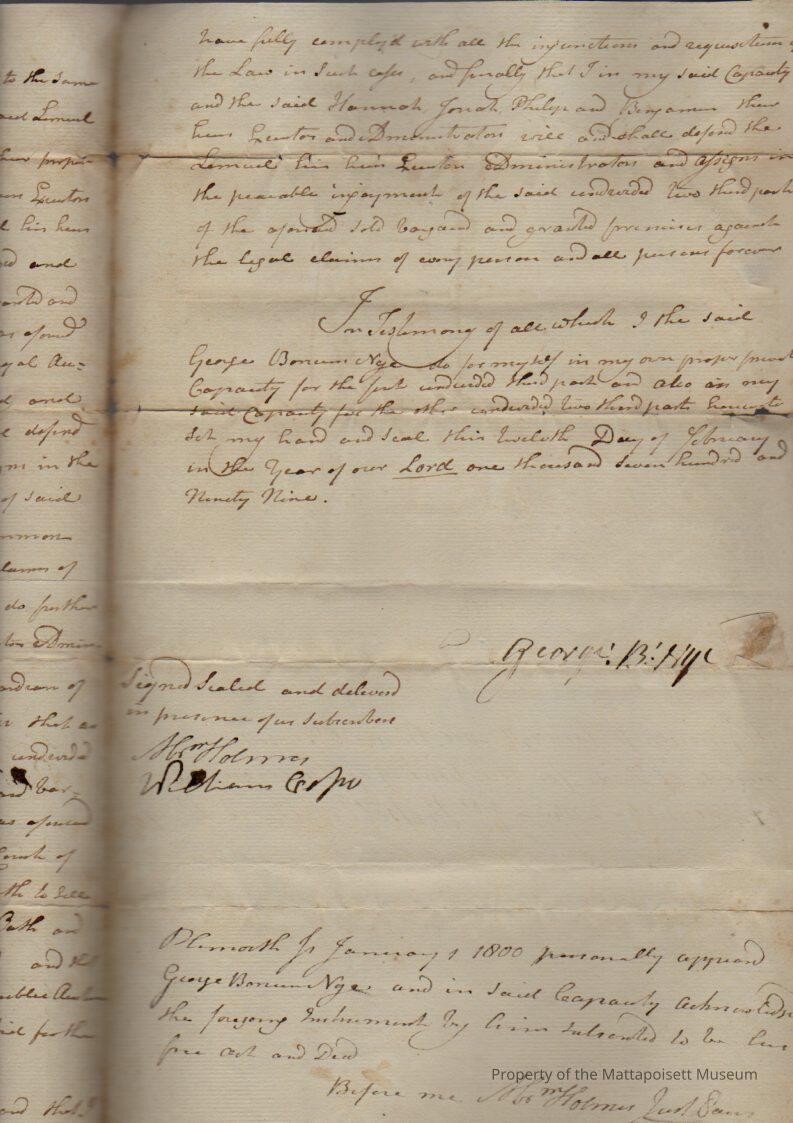 to the same
said Lemuel
their proper
heirs Executors
his heirs
and
and
as afores.d
legal Au=
and
defend
in the
of said
common
claims of
do further
Admin
Guardian of
that as
undivided
and bar=
as aforesaid
Court of
to Sell
Oath and
and that
publick Auction
for the
and that
have fully comply'd with all the injunctions and requisitions of
the Law in such cases, and finally that I in my said Capacity
and the said Hannah, Jonah, Philip and Benjamin their
heirs Executors and Administrators will and shall defend the
Lemuel his heirs Executors Administrators and assigns in
the peacable injoyment of the said undivided two third parts
of the aforesaid sold bargaind and granted premises against
the legal claims of every person and all persons forever
In Testimony of all which I the said
George Bonum Nye do for myself in my own proper privet
Capacity for the first undivided third part and also in my
said Capacity for the other undivided two third parts hereunto
Set my hand and seal this twelfth Day of February
in the Year of our Lord one thousand seven hundred and
Ninety Nine.
George B. Nye
Signed Sealed and deliverd
in presence of us subscribers
Abr.m Holmes
William
Plymouth Ss January 1 1800 personally appeard
George Bonum Nye and in said Capacity acknowledg
the foregoing Instrument by him subscribed to be his
free act and Deed
Before me Abr.m Holmes Just Pacis
Property of the Mattapoisett Museum